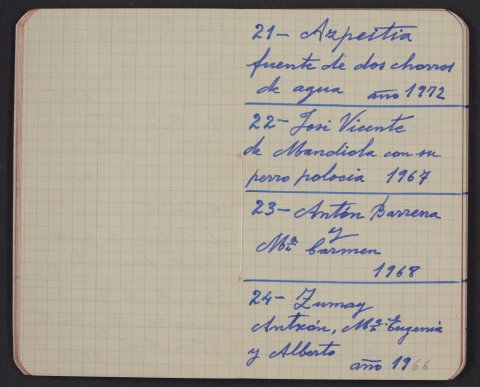 21- Azpeitia
fuente de dos chorros
de agua año 1972
22- José Vicente
de Mandiola con su
perro polocia 1967
23- Antón Barrena
y
Mª Carmen
1968
24- Zumay
Antxón, Mª Eugenia
y Alberto
año 1966